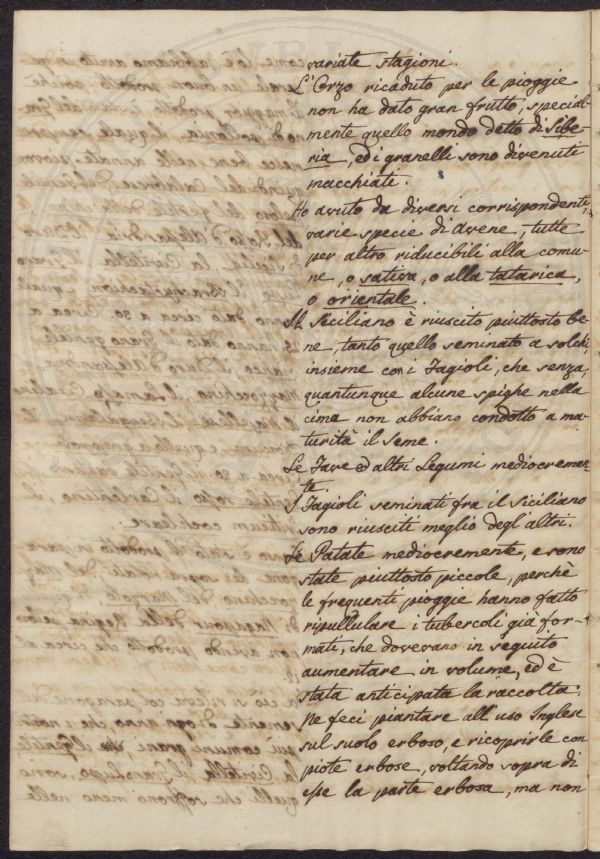 variate stagioni.
L'Orzo ricaduto per le pioggie
non ha dato gran frutto, special-
mente quello mondo detto di Sibe-
ria, ed i granelli sono divenuti
macchiati.
Ho avuto da diversi corrispondenti,
varie specie di Avene, tutte
per altro riducibili alla comu-
ne, o sativa, o alla tatarica,
o orientale.
Il Siciliano è riuscito piuttosto be-
ne, tanto quello seminato a solchi,
insieme con i Fagioli, che senza,
quantunque alcune spighe nella
cima non abbiano condotto a ma-
turità il seme.
Le Fave ed altri Legumi mediocremen-
te.
I Fagioli seminati fra il Siciliano
sono riusciti meglio degl'altri.
Le Patate mediocremente, e sono
state piuttosto piccole, perchè
le frequenti pioggie hanno fatto
ripullulare i tubercoli già for-
mati, che doverano in seguito
aumentare in volume, ed è
stata anticipata la raccolta.
Ne feci piantare all'uso Inglese
sul suolo erboso, e ricoprirle con
piote erbose, voltando sopra di
esse la parte erbosa, ma non